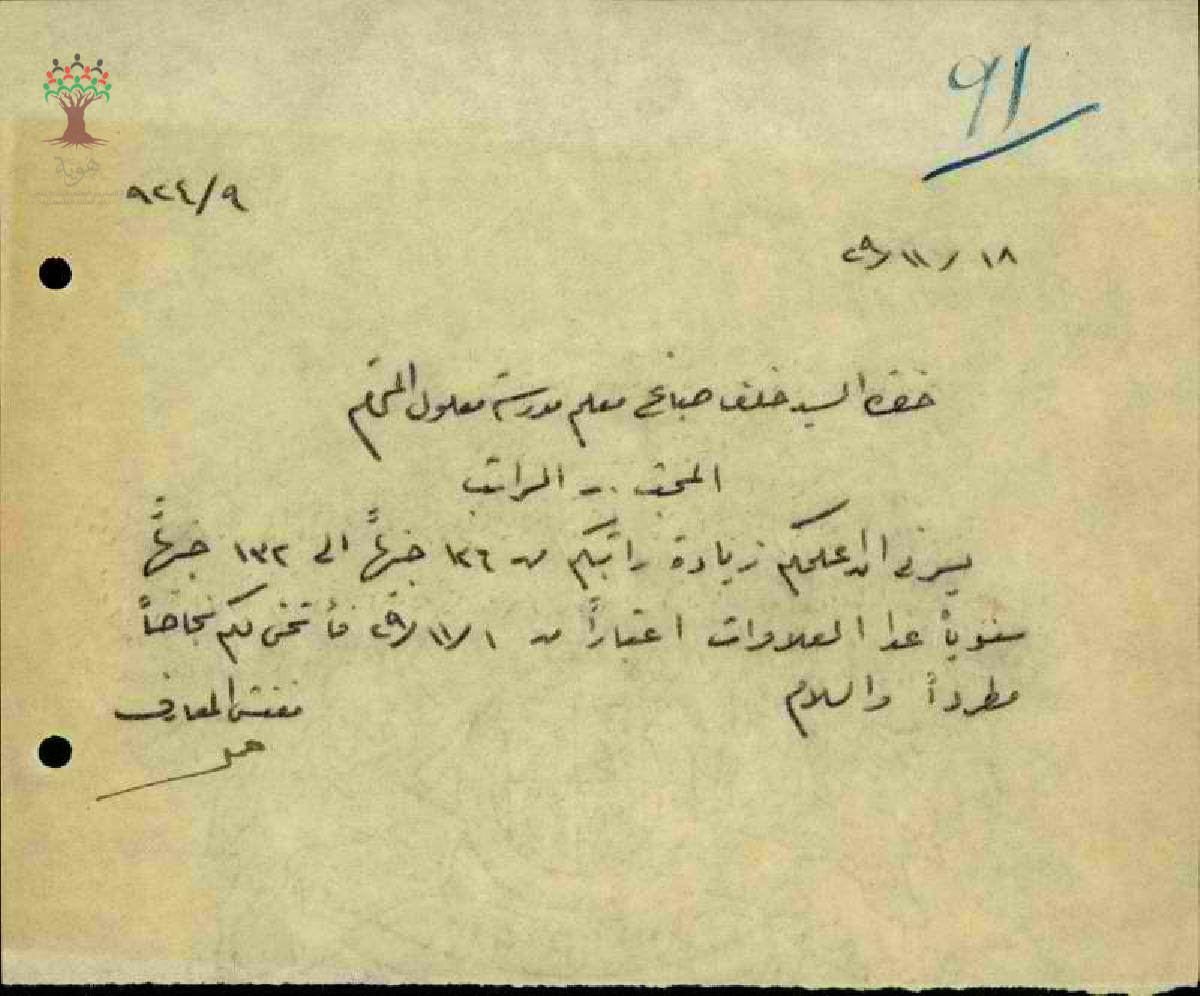 ٩١
هوية
٩٢٤/٩
١٨/١١/٢٩
حضرة السيد خلف صباغ معلم مدرسة معلول المحترم
المبحث :- الراتب
يسرني ان اعلمكم زيادة راتبكم من ١٢٦ جنيهاً الى ١٣٢ جنيهاً
سنوياً عدا العلاوات اعتباراً من ١/١١/٢٩ فأتمنى لكم نجاحاً
مطرداً والسلام
مفتش المعارف